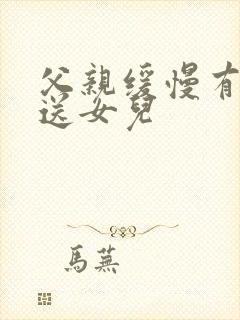 父親緩慢有
送女兒
馬蕪